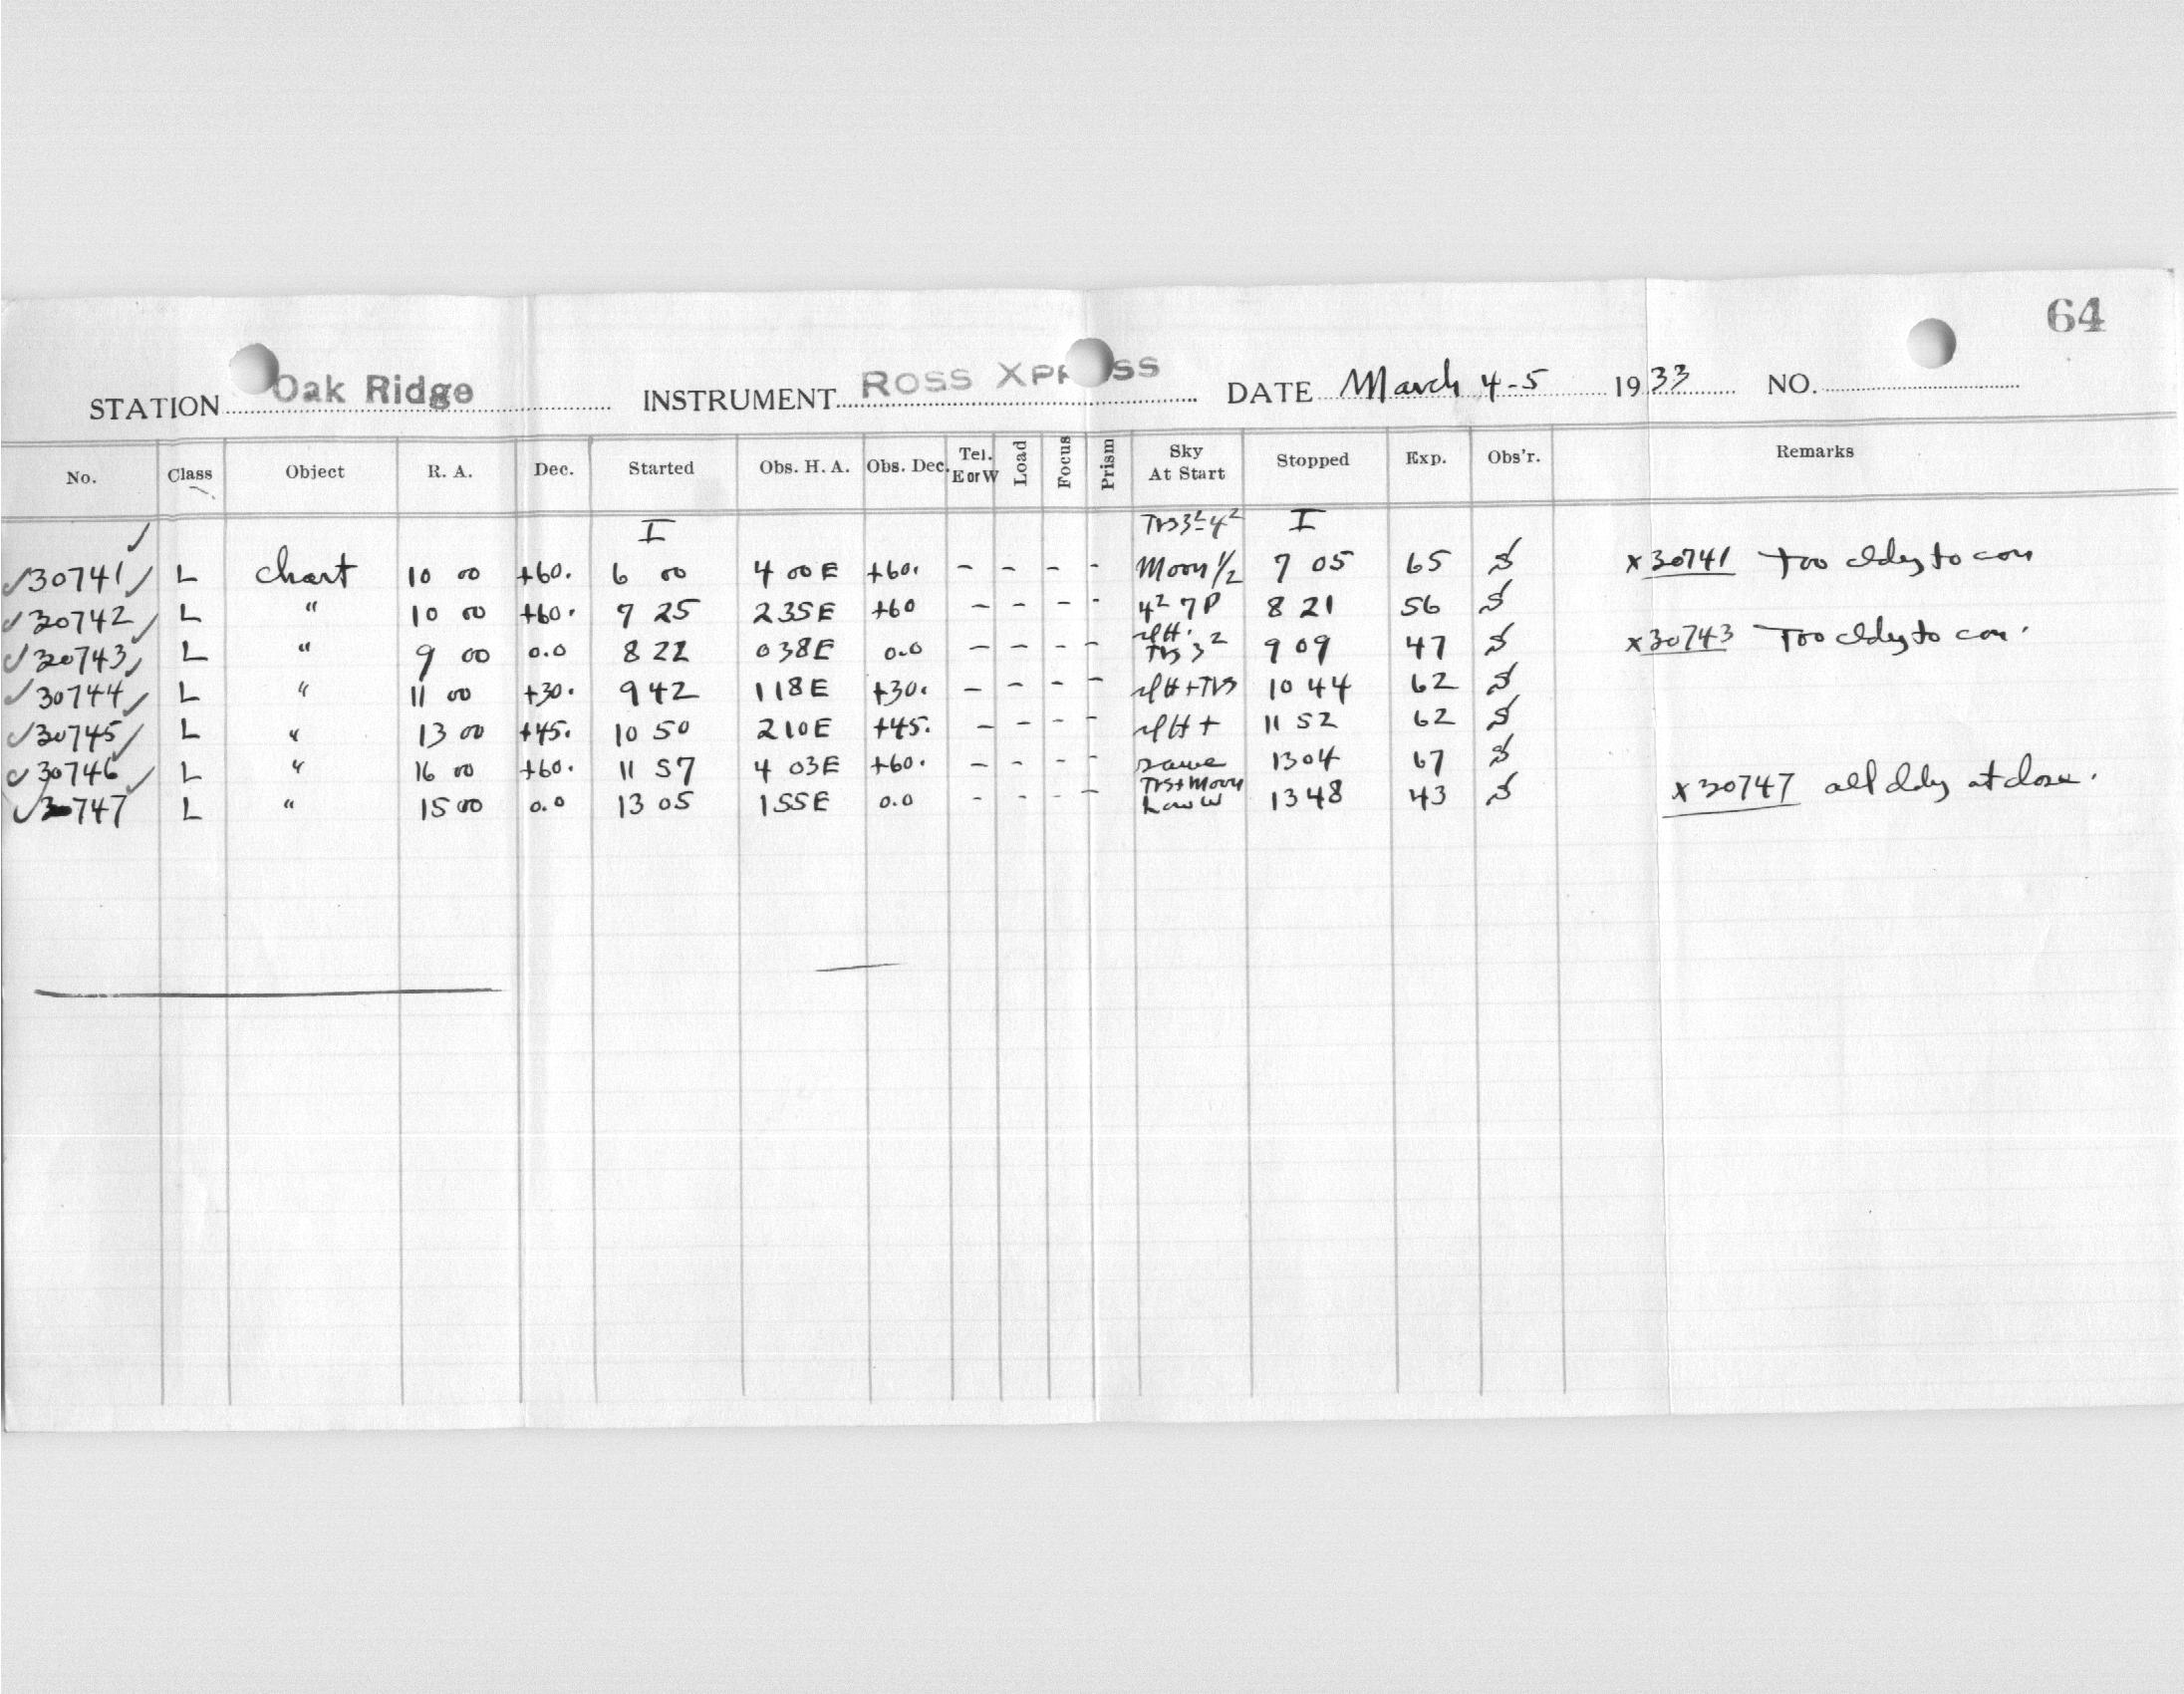 64
STATION Oak Ridge INSTRUMENT ROSS XPRESS DATE March 4-5 1933 NO.
No. Class Object R. A. Dec. Started Obs. H. A. Obs. Dec. Tel. E or W Load Focus Prism Sky At Start Stopped Exp. Obs'r. Remarks
I Trs 3²-4² I
✓30741✓ L Chart 10 00 +60. 6 00 4 00 E +60. - - - - Moon 1/2 7 05 65 S x30741 Too cldy to con
✓30742✓ L " 10 00 +60. 7 25 235E +60 - - - - 4² 7P 8 21 56 S
✓30743✓ L " 9 00 0.0 8 22 038E 0.0 - - - - Trs 3² 9 09 47 S x30743 Too cldy to con.
✓30744✓ L " 11 00 +30. 9 42 118E +30. - - - - 10 44 62 S
✓30745✓ L " 13 00 +45. 10 50 210E +45. - - - - 11 52 62 S
✓30746✓ L " 16 00 +60. 11 57 4 03E +60. - - - - same 1304 67 S
✓30747 L " 15 00 0.0 13 05 155E 0.0 - - - - Trs + Moon Low W 1348 43 S x30747 all cldy at close.